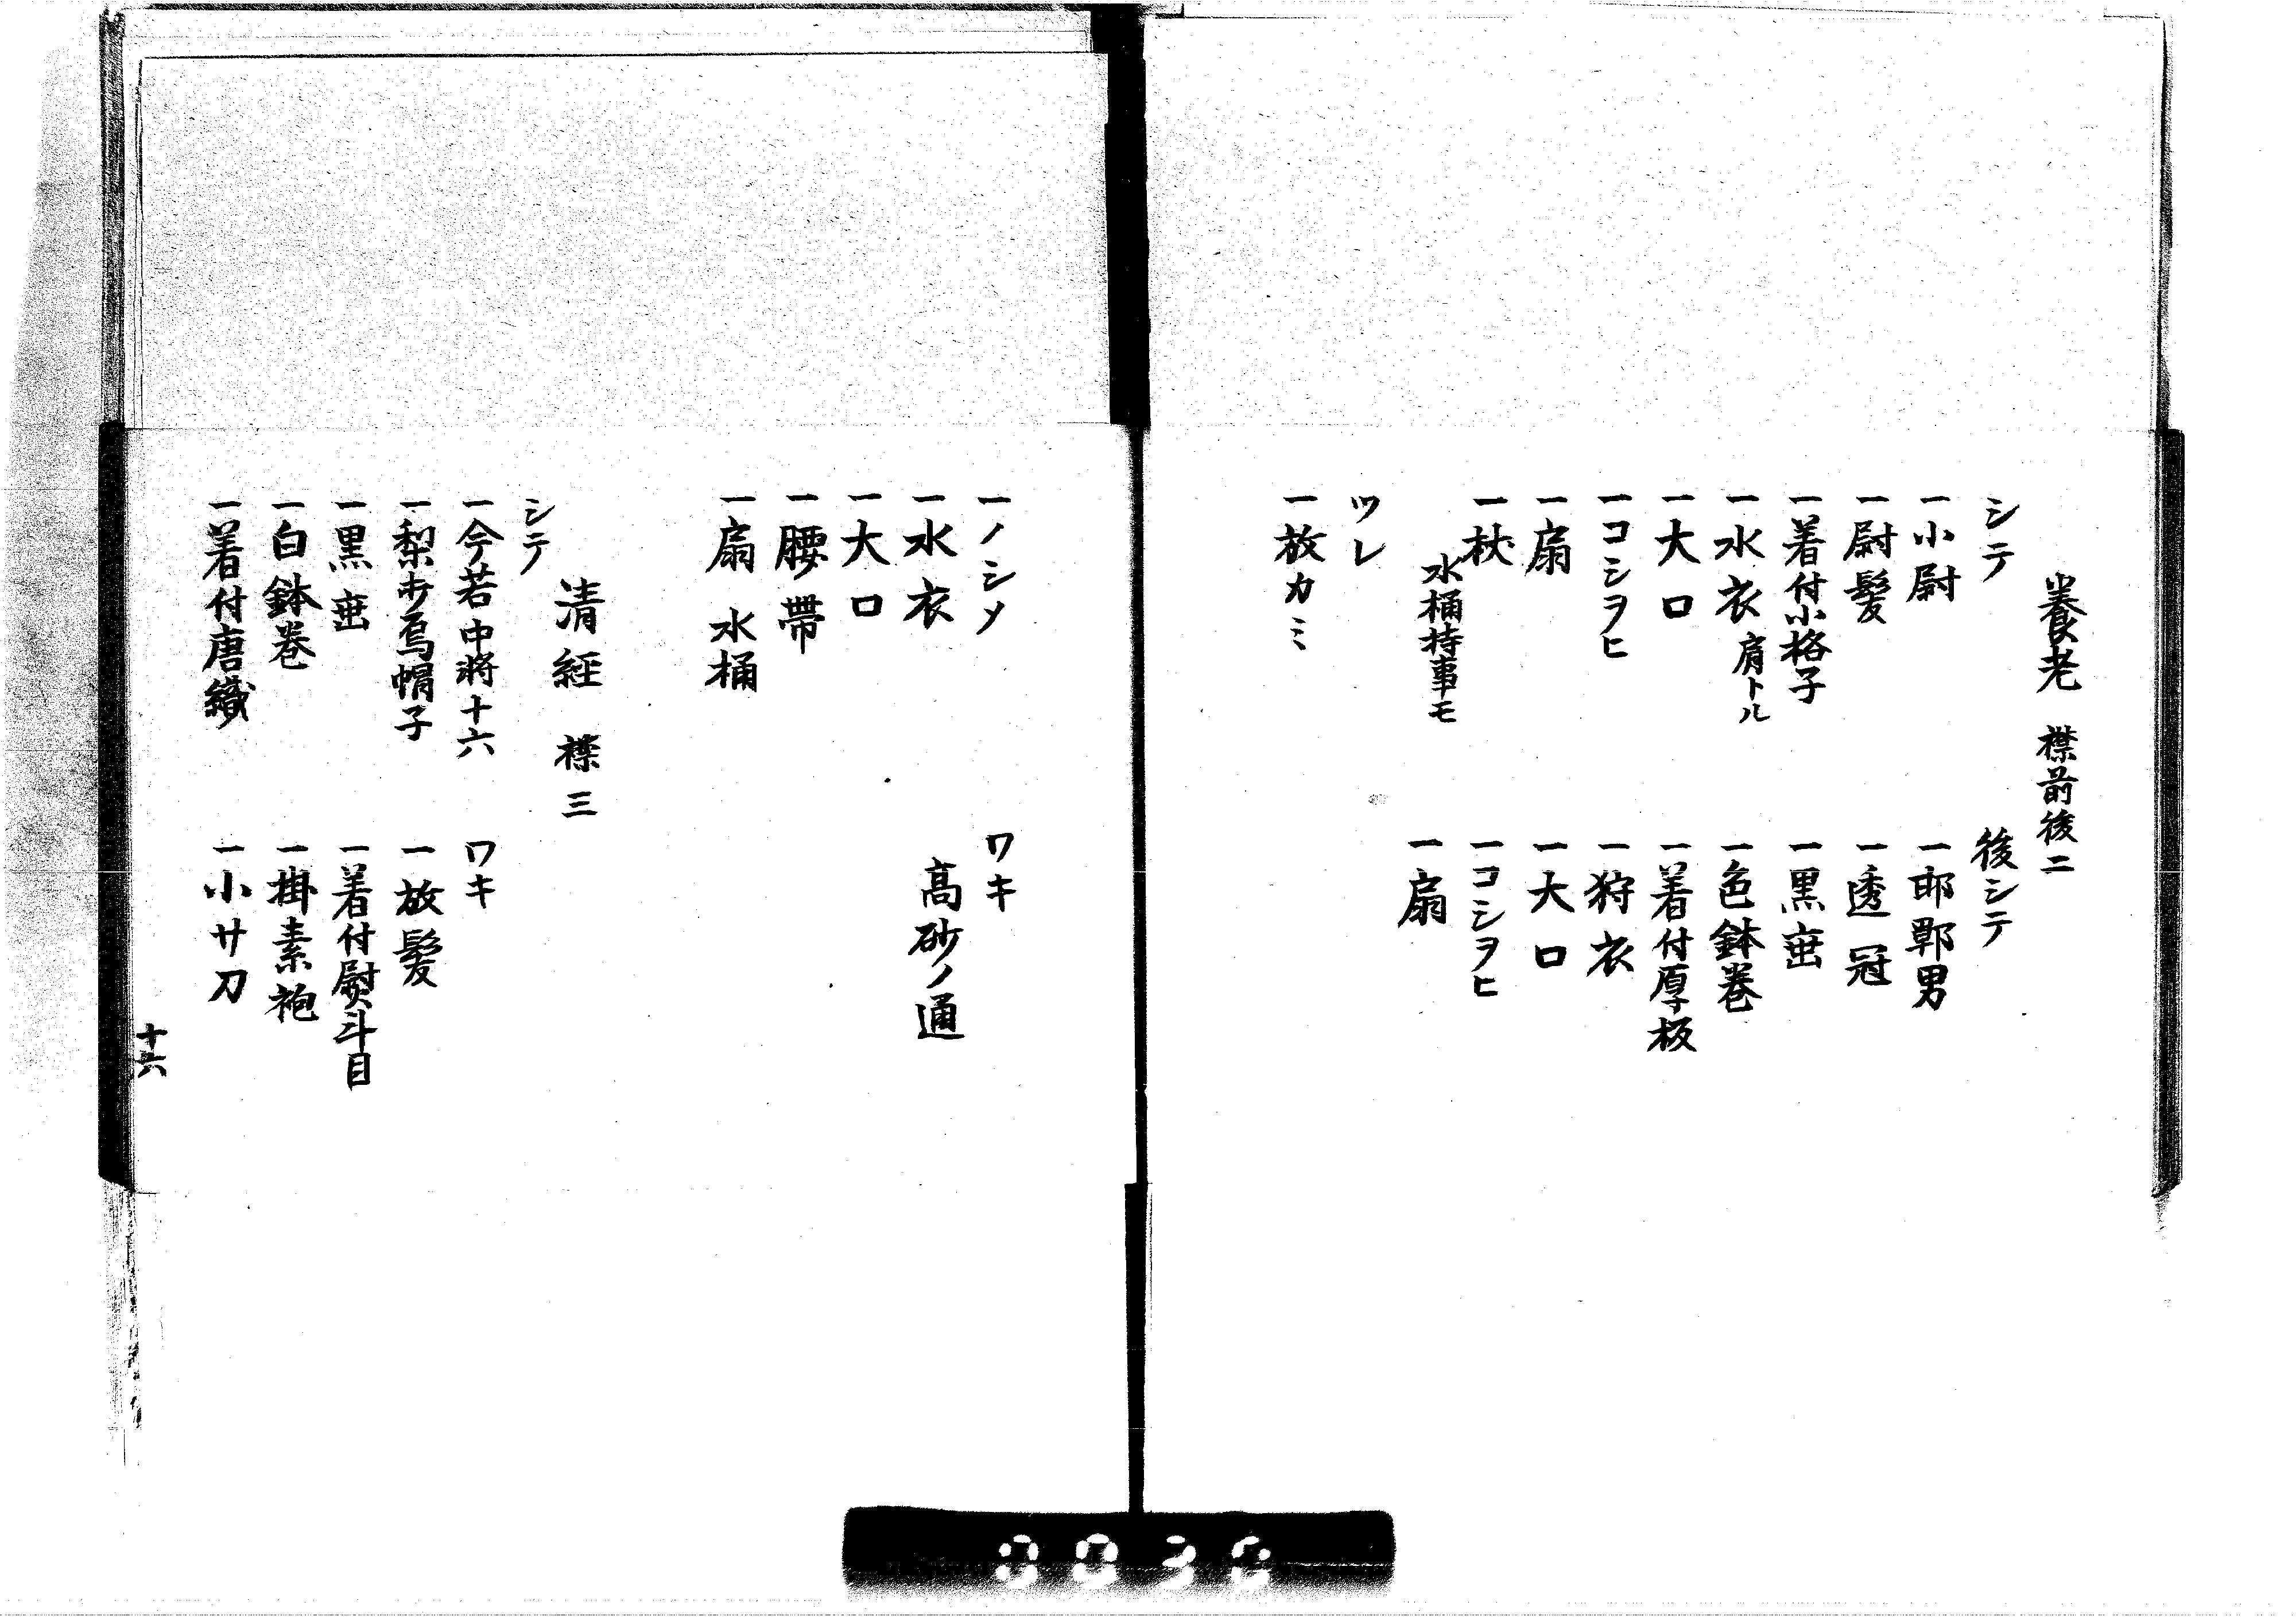 養老　襟前後二
シテ
一小尉
一尉髪
一着付小格子
一水衣肩トル
一大口
一コシヲヒ
一扇
一杖
水桶持事モ
ツレ
一放カミ
後シテ
一邯鄲男
一透冠
一黒垂
一色鉢巻
一着付厚板
一狩衣
一大口
一コシヲヒ
一扇
一ノシメ
一水衣
一大口
一腰帯
一扇　水桶
ワキ
高砂ノ通
清経　襟三
シテ
一今若中将十六
一梨打烏帽子
一黒垂
一白鉢巻
一着付唐織
ワキ
一放髪
一着付熨斗目
一掛素袍
一小サ刀
十六